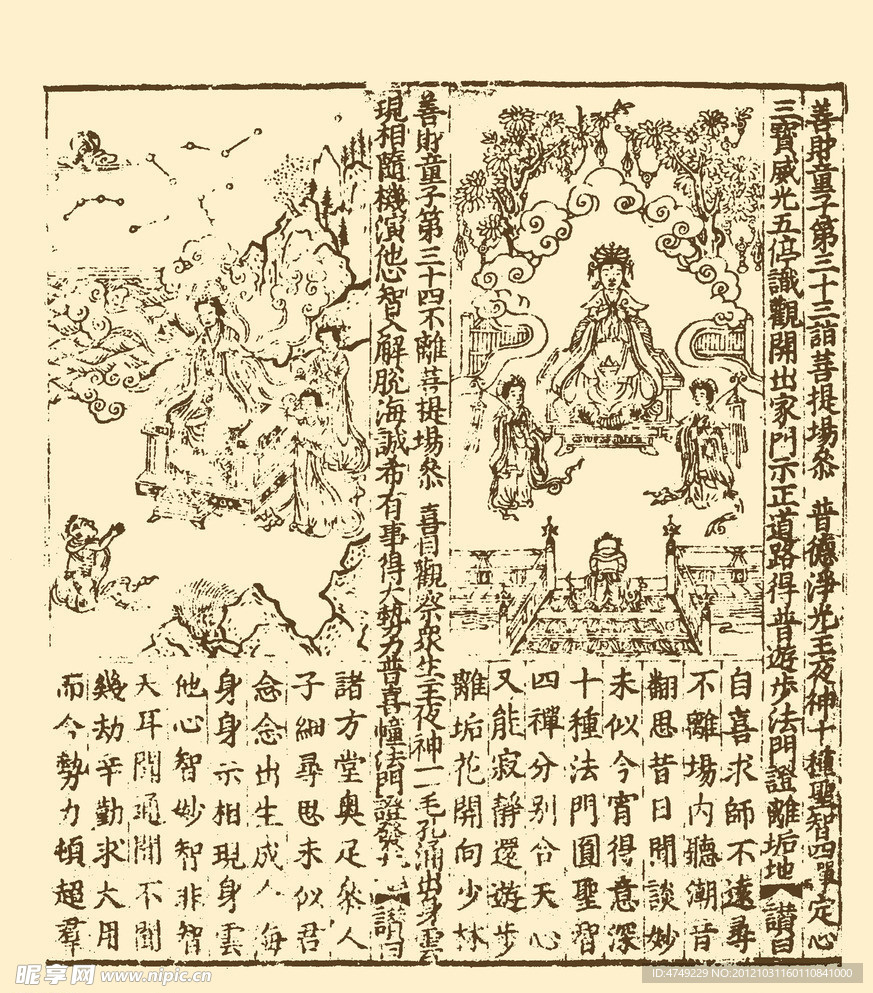 善財童子第三十三詣菩提場叅 普德淨光主夜神十種聖智四單定心
三寶威光五停識觀開出家門示正道路得普遊步法門證離垢地 讃曰
自喜求師不遠尋
不離場内聽潮音
翻思昔日閒談妙
未似今宵得意深
十種法門圓聖智
四禪分别合天心
又能寂靜還遊步
離垢花開向少林
善財童子第三十四不離菩提場叅 喜目觀察衆生主夜神一一毛孔涌出身雲
現相隨機演他心智入解脱海誠希有事得大勢力普喜幢法門證發 讃曰
諸方堂奥足叅人
子細尋思未似君
念念出生成 海
身身示相現身雲
他心智妙智非智
天耳聞通聞不聞
幾劫辛勤求大用
而今勢力頓超羣
昵享网 www.nipic.cn
ID:4749229 NO:20121031160110841000